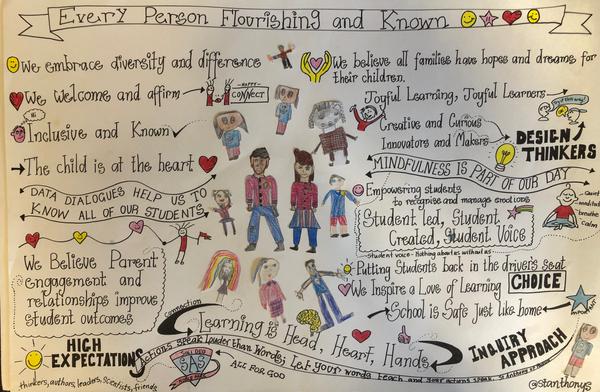 Every Person Flourishing and Known
We embrace diversity and difference
We welcome and affirm
HAPPY
CONNECT
Hi
Inclusive and Known
The child is at the heart
DATA DIALOGUES HELP US TO
KNOW ALL OF OUR STUDENTS
We Believe Parent
engagement and
relationships improve
student outcomes
HIGH
EXPECTATIONS
thinkers, authors, leaders, scientists, friends
We believe all families have hopes and dreams for
their children.
Joyful Learning, Joyful Learners
Creative and Curious
Innovators and Makers
DESIGN
THINKERS
MINDFULNESS IS PART OF OUR DAY
Empowering students
to recognise and manage emotions
breathe
calm
Student led, Student
Created, Student Voice
Student voice - Nothing about us without us
Putting Students back in the drivers seat
We Inspire a Love of Learning
CHOICE
School is Safe Just like home
connection
Learning is Head, Heart, Hands
INQUIRY
APPROACH
Actions speak louder than Words; Let your words teach and your actions speak.
SAS
ALL FOR GOD
@stanthonys